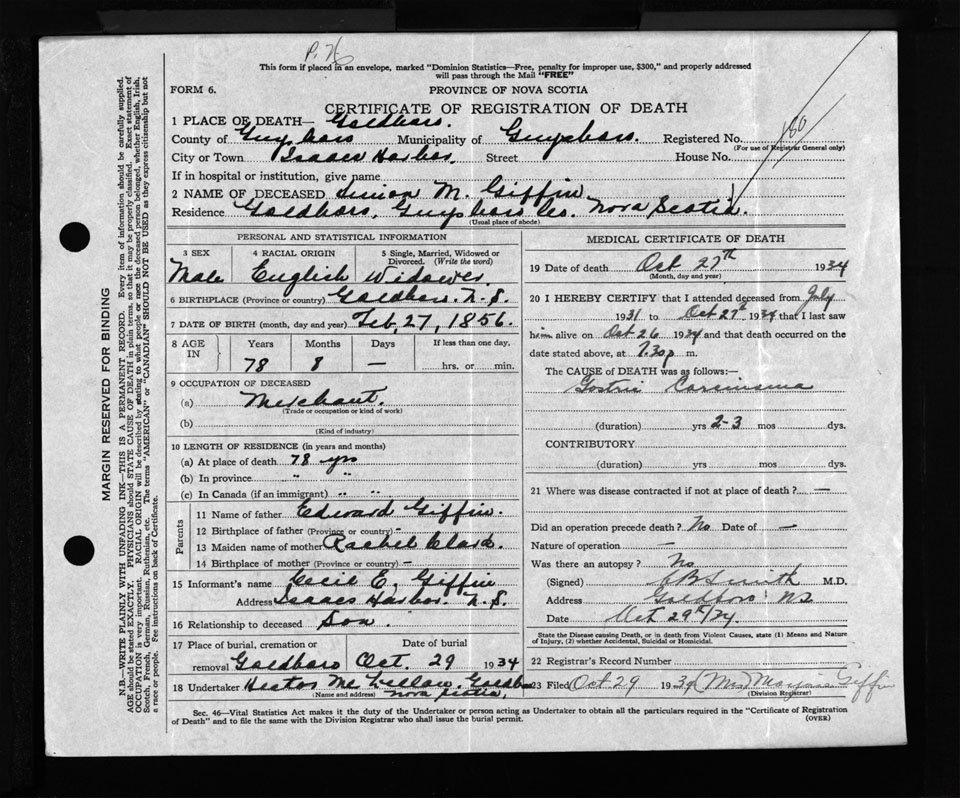 This form if placed in an envelope, marked "Dominion Statistics—Free, penalty for improper use, $300," and properly addressed
will pass through the Mail "FREE"
FORM 6.
PROVINCE OF NOVA SCOTIA
CERTIFICATE OF REGISTRATION OF DEATH
1 PLACE OF DEATH— Goldboro.
County of Guysboro Municipality of Guysboro. Registered No. 160
(For use of Registrar General only)
City or Town Isaacs Harbor. Street House No.
If in hospital or institution, give name
2 NAME OF DECEASED Simon M. Giffin
Residence Goldboro, Guysboro Co. Nova Scotia.
(Usual place of abode)
PERSONAL AND STATISTICAL INFORMATION
3 SEX 4 RACIAL ORIGIN 5 Single, Married, Widowed or Divorced. (Write the word)
Male English Widower
6 BIRTHPLACE (Province or country) Goldboro. N.S.
7 DATE OF BIRTH (month, day and year) Feb, 27, 1856.
8 AGE IN Years Months Days If less than one day.
78 8 — hrs. or min.
9 OCCUPATION OF DECEASED
(a) Merchant.
(Trade or occupation or kind of work)
(b)
(Kind of industry)
10 LENGTH OF RESIDENCE (in years and months)
(a) At place of death 78 yrs
(b) In province " "
(c) In Canada (if an immigrant) " "
Parents
11 Name of father Edward Giffin.
12 Birthplace of father (Province or country) -
13 Maiden name of mother Rachel Clark.
14 Birthplace of mother (Province or country) -
15 Informant's name Cecil E. Giffin
Address Isaacs Harbor. N.S.
16 Relationship to deceased Son.
17 Place of burial, cremation or removal Date of burial
Goldboro Oct. 29 1934
18 Undertaker Hector Goldboro
(Name and address) Nova Scotia.
MEDICAL CERTIFICATE OF DEATH
19 Date of death Oct 27th 1934
(Month, day and year)
20 I HEREBY CERTIFY that I attended deceased from July
1931 to Oct 27th 1934 that I last saw
him alive on Oct 26 1934 and that death occurred on the
date stated above, at 7.30p m.
The CAUSE of DEATH was as follows:—
Gastric Carcinoma
(duration) yrs 2-3 mos dys.
CONTRIBUTORY
(duration) yrs mos dys.
21 Where was disease contracted if not at place of death? —
Did an operation precede death? No Date of —
Nature of operation —
Was there an autopsy? No
(Signed) Smith M.D.
Address Goldboro NS
Date Oct 29th/34.
State the Disease causing Death, or in death from Violent Causes, state (1) Means and Nature
of Injury, (2) whether Accidental, Suicidal or Homicidal.
22 Registrar's Record Number
23 Filed Oct 29 1934 (Mrs) Giffin
(Division Registrar)
Sec. 46—Vital Statistics Act makes it the duty of the Undertaker or person acting as Undertaker to obtain all the particulars required in the "Certificate of Registration
of Death" and to file the same with the Division Registrar who shall issue the burial permit.
(OVER)
MARGIN RESERVED FOR BINDING
N.B.—WRITE PLAINLY WITH UNFADING INK—THIS IS A PERMANENT RECORD. Every item of information should be carefully supplied.
AGE should be stated EXACTLY. PHYSICIANS should STATE CAUSE OF DEATH in plain terms, so that it may be properly classified. Exact statement of
OCCUPATION is very important. RACIAL ORIGIN will be described by stating to what people or race the deceased person belonged, whether English, Irish,
Scotch, French, German, Russian, Ruthenian, etc. The terms "AMERICAN" or "CANADIAN" SHOULD NOT BE USED as they express citizenship but not
a race or people. See instructions on back of Certificate.